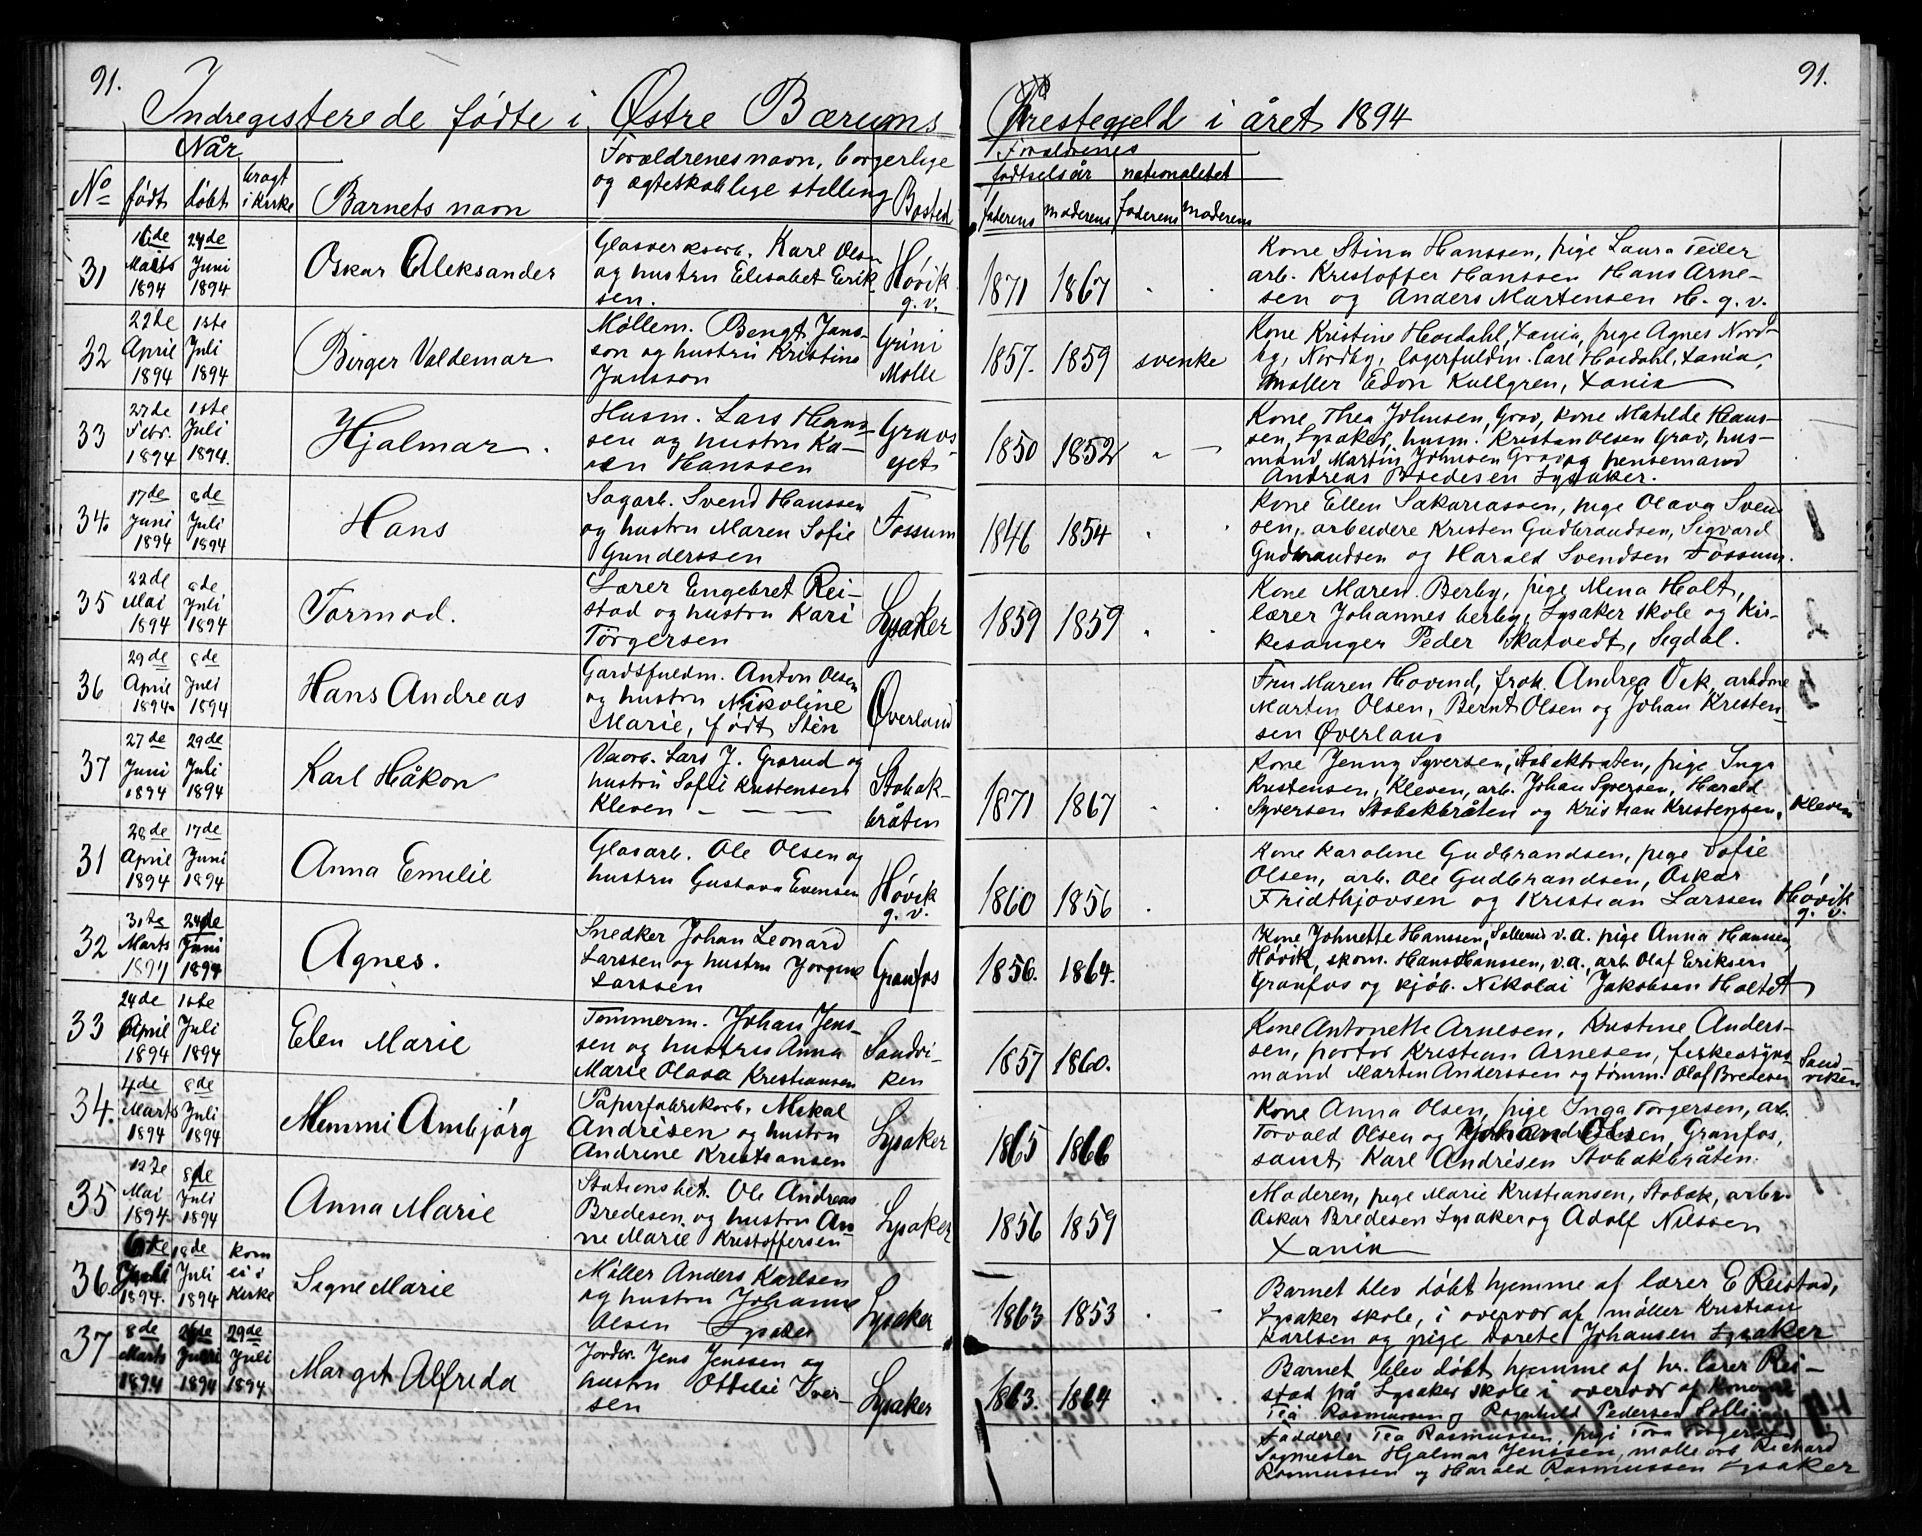 91.
91.
Indregisterede fødte i Østre Bærums
Præstegjeld i året 1894
Når
No
født
døbt
bragt
i kirke
Barnets navn
Forældrenes navn, borgerlige
og ægteskablige stilling
Bosted
Forældrenes
fødtselsår nationalitet
faderens moderens faderens moderens
31
16de
Marts
1894
24de
Juni
1894
Oskar Aleksander
Glasverksarb. Karl Olsen
og hustru Elisabet Erik-
sen.
Høvik
g. v.
1871 1867
Kone Stina Hanssen, pige Laura Teiler
arb. Kristoffer Hanssen Hans Arne-
sen og Anders Martensen H. g. v.
32
22de
April
1894
1ste
Juli
1894
Birger Valdemar
Møllem. Bengt Jans-
son og hustru Kristine
Jansson
Grini
Mølle
1857. 1859 svenke
Kone Kristine Hoidahl, Xania, pige Agnes Nord-
by, Nordby, lagerfuldm. Carl Hoidahl, Xania,
Møller Edon Kullgren, Xania
33
27de
Febr.
1894
1ste
Juli
1894.
Hjalmar.
Husm. Lars Hans-
sen og hustru Ka-
ren Hanssen
Gravs
ejet
1850 1852
Kone Thea Johnsen, Grav, kone Matilde Hans-
sen, Lysaker, husm. Kristan Olsen Grav, hus-
mand Martin Johnsen Grav og
Andreas Bredesen Lysaker.
34.
17de
Juni
1894
8de
Juli
1894
Hans
Sagarb. Svend Hanssen
og hustru Maren Sofie
Gunderssen
Fossum
1846 1854
Kone Ellen Sakariassen, pige Olava Sven
sen, arbeidere Kristen Gudbrandsen, Sigvard
Gudbrandsen og Harald Svendsen Fossum.
35
22de
Mai
1894
8de
Juli
1894
Tormod.
Lærer Engebret Rei-
stad og hustru Kari
Torgersen
Lysaker
1859 1859
Kone Maren Berby, pige Mena Holt,
lærer Johannes berby, Lysaker skole og Kir-
kesanger Peder Skatvedt, Sigdal.
36
29de
April
1894
8de
Juli
1894
Hans Andreas
Gardsfuldm. Anton Olsen
og hustru Nikoline
Marie, født Stén
Øverland
Fru Maren Hovind, frøk. Andrea Vik, arbdrne
Martin Olsen, Bernt Olsen og Johan Kristen-
sen Øverland
37
27de
Juni
1894
29de
Juli
1894
Karl Håkon
Vaarb. Lars J. Grorud og
hustru Sofie Kristensen
Kleven - - -
Stabak-
bråten
1871 1867
Kone Jenny Syversen, Stabakbråten, pige Inga
Kristensen, Kleven, arb. Johan Syversen, Harald
Syversen Stabakbråten og Kristian Kristensen, Kleven
31
28de
April
1894
17de
Juni
1894
Anna Emilie
Glasarb. Ole Olsen og
hustru Gustava Evensen
Høvik
g. v.
1860 1856
Kone Karoline Gudbrandsen, pige Sofie
Olsen, arb. Ole Gudbrandsen, Oskar
Fridthjovsen og Kristian Larssen Høvik
g. v.
32
31te
Marts
1894
24de
Juni
1894
Agnes.
Snedker Johan Leonard
Larssen og hustru Jorgine
Larssen
Granfos
1856. 1864.
Kone Johnette Hanssen, Sollerud v.a. pige Anna Hanssen
Høvik, skom. Hans Hanssen, v.a., arb. Olaf Eriksen
Granfos og kjøb. Nikolai Jakobsen Holtet
33
24de
April
1894
1ste
Juli
1894
Elen Marie
Tømmerm. Johan Jens-
sen og hustru Anna
Marie Olava Kristiansen
Sandvi-
ken
1857 1860.
Kone Antonette Arnesen, Kristine Anders-
sen, portør Kristian Arnesen,
mand Martin Anderssen og tømm. Olaf Bredesen
Sand-
viken
34.
4de
Marts
1894
8de
Juli
1894
Memmi Ambjørg
Papirfabrikarb. Mikal
Andrésen og hustru
Andrine Kristiansen
Lysaker
1865 1866
Kone Anna Olsen, pige Inga Torgersen, arb.
Torvald Olsen og Johan Olsen, Granfos,
samt Karl Andrésen Stabakbråten.
35
12te
Mai
1894
8de
Juli
1894
Anna Marie
Stationsbet. Ole Andreas
Bredesen og hustru An-
ne Marie Kristoffersen
Lysaker
1856 1859
Moderen, pige Marie Kristiansen, Stabæk, arbr.
Oskar Bredesen Lysaker og Adolf Nilssen
Xania
36.
6te
Juli
1894.
18de
Juli
1894
kom
ei i
kirke
Signe Marie
Møller Anders Karlsen
og hustru Johanne
Olsen Lysaker
Lysaker
1863 1853
Barnet blev døbt hjemme af lærer E Reistad,
Lysaker skole, i overvær af møller Kristian
Karlsen og pige Dorete Johansen Lysaker
37
8de
Marts
1894
1894
29de
Juli
1894
Margit Alfreda
Jordbr. Jens Jenssen og
hustru Ottilie Iver-
sen
Lysaker
1863. 1864
Barnet blev døbt hjemme af hr. lærer Rei-
stad på Lysaker skole i overvær af konerne
Tea Rasmussen og Ragnhild Pedersen Lolli
Faddere: Tea Rasmussen, pige Tora Torgersen
Sagmester Hjalmar Jenssen, møllearb. Richard
Rasmussen og Harald Rasmussen Lysaker